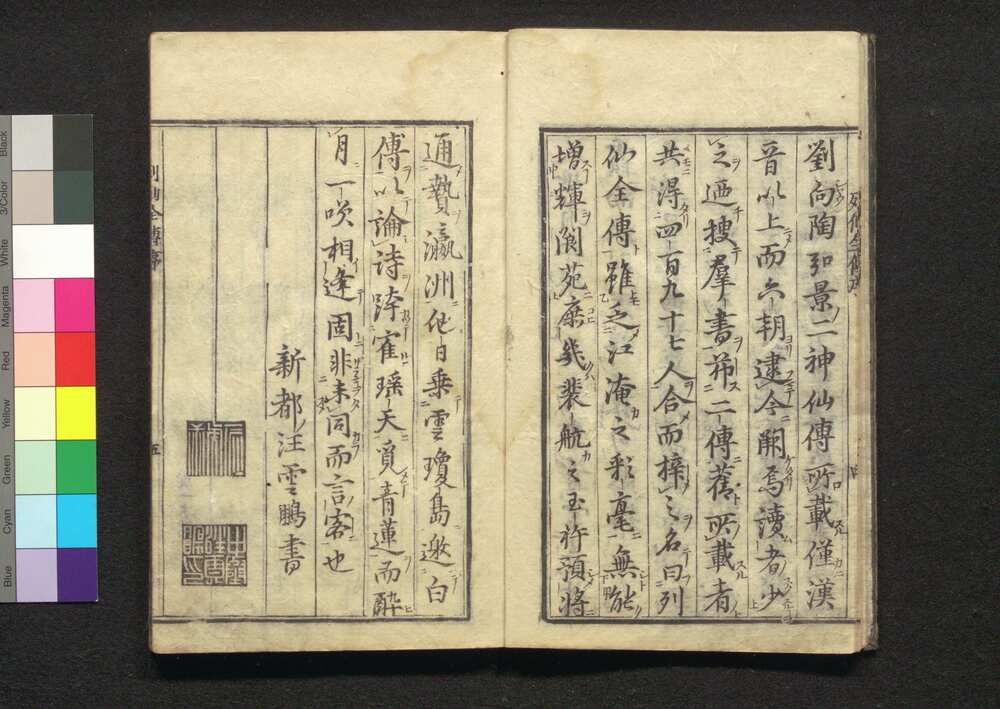 劉向陶弘景二神仙傳所載僅漢
晋以上而六朝逮今闕焉讀者少
之廼搜羣書并二傳舊所載者
共得四百九十七人合而梓之名曰列
仙全傳雖乏江淹之彩毫無能
增輝閬苑庶幾裴航之玉杵預將
通贄瀛洲他日乗雲瓊島邀白
傅以論詩跨寉瑶天覓青蓮而醉
月一咲相逢固非未同而言者也
新都汪雲鵬書
Blue
Cyan
Green
Yellow
Red
Magenta
White
3/Color
Black